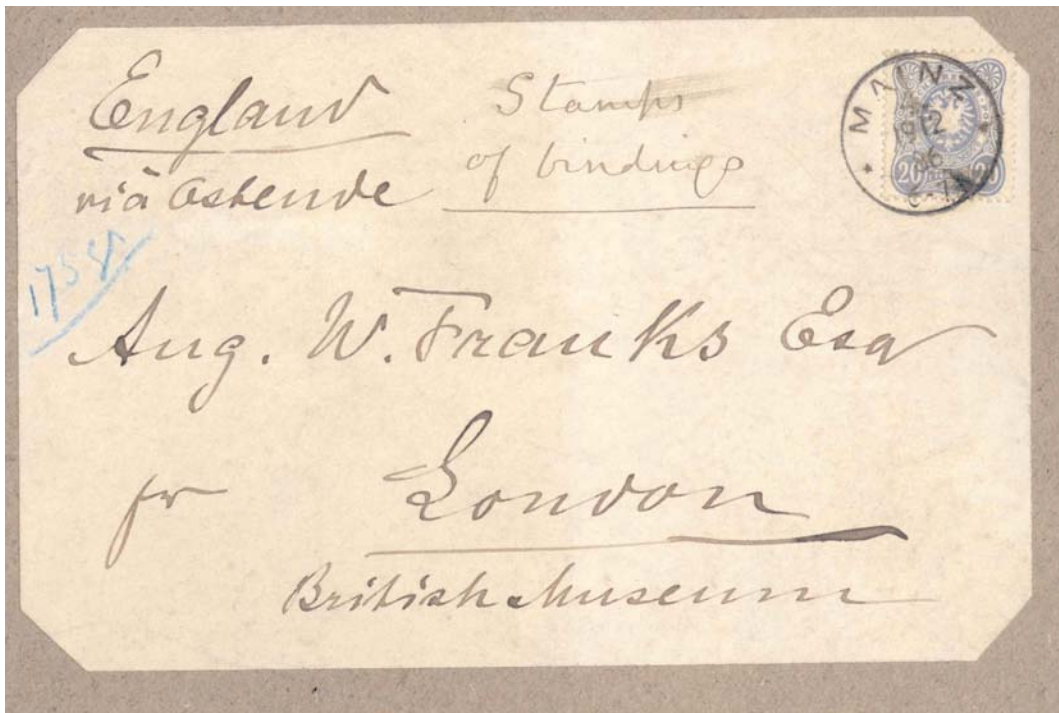 England
via Ostende
Stamps
of bindings
MAINZ
9 12
86
20 20
1758
Aug. W. Franks Esq
fr London
British Museum